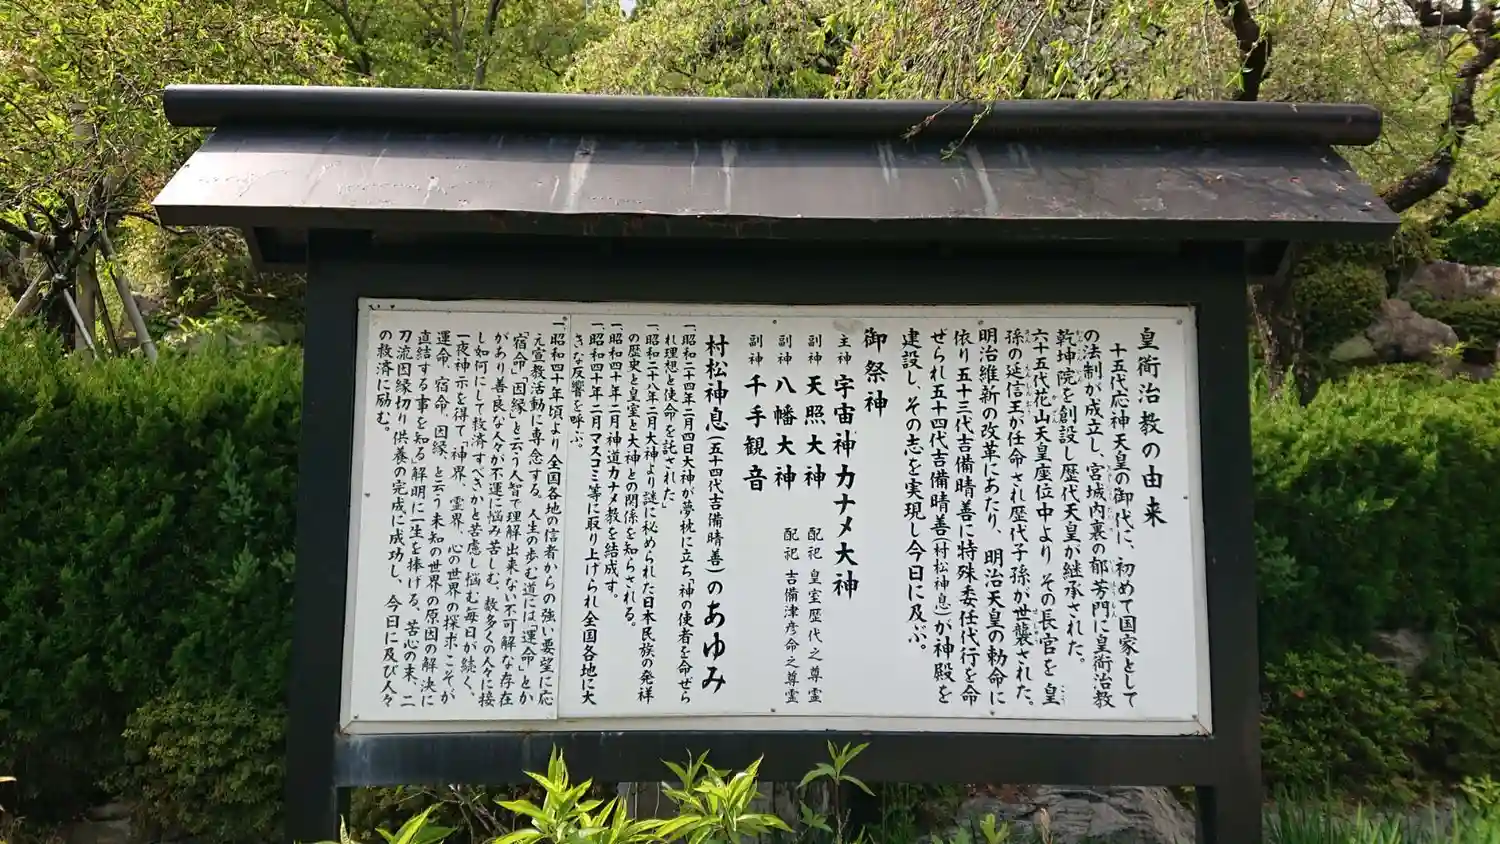 皇衛治教の由来
十五代応神天皇の御代に、初めて国家として
の法制が成立し、宮城内裏の郁芳門に皇衛治教
乾坤院を創設し歴代天皇が継承された。
六十五代花山天皇座位中より その長官を 皇
孫の延信王が任命され歴代子孫が世襲された。
明治維新の改革にあたり、明治天皇の勅命に
依り五十三代吉備晴善に特殊委任代行を命
ぜられ五十四代吉備晴善(村松神息)が神殿を
建設し、その志を実現し今日に及ぶ。
御祭神
主神 宇宙神カナメ大神
副神 天照大神 配祀 皇室歴代之尊霊
副神 八幡大神 配祀 吉備津彦命之尊霊
副神 千手観音
村松神息(五十四代吉備晴善)のあゆみ
一、昭和二十四年二月四日大神が夢枕に立ち、「神の使者を命ぜら
れ理想と使命を託された」
一、昭和二十八年二月大神より謎に秘められた日本民族の発祥
の歴史と皇室と大神との関係を知らされる。
一、昭和四十年二月神道カナメ教を結成す。
一、昭和四十年二月マスコミ等に取り上げられ全国各地に大
きな反響を呼ぶ。
一、昭和四十年頃より全国各地の信者からの強い要望に応
え宣教活動に専念する。人生の歩む道には「運命」とか
「宿命」「因縁」と云う人智で理解出来ない不可解な存在
があり善良な人々が不運に悩み苦しむ、数多くの人々に接
し如何にして救済すべきかと苦慮し悩む毎日が続く、
一夜神示を得て「神界、霊界、心の世界の探求こそが
運命、宿命、因縁、と云う未知の世界の原因の解決に
直結する事を知る」解明に一生を捧げる、苦心の末、二
刀流因縁切り供養の完成に成功し、今日に及び人々
の救済に励む。